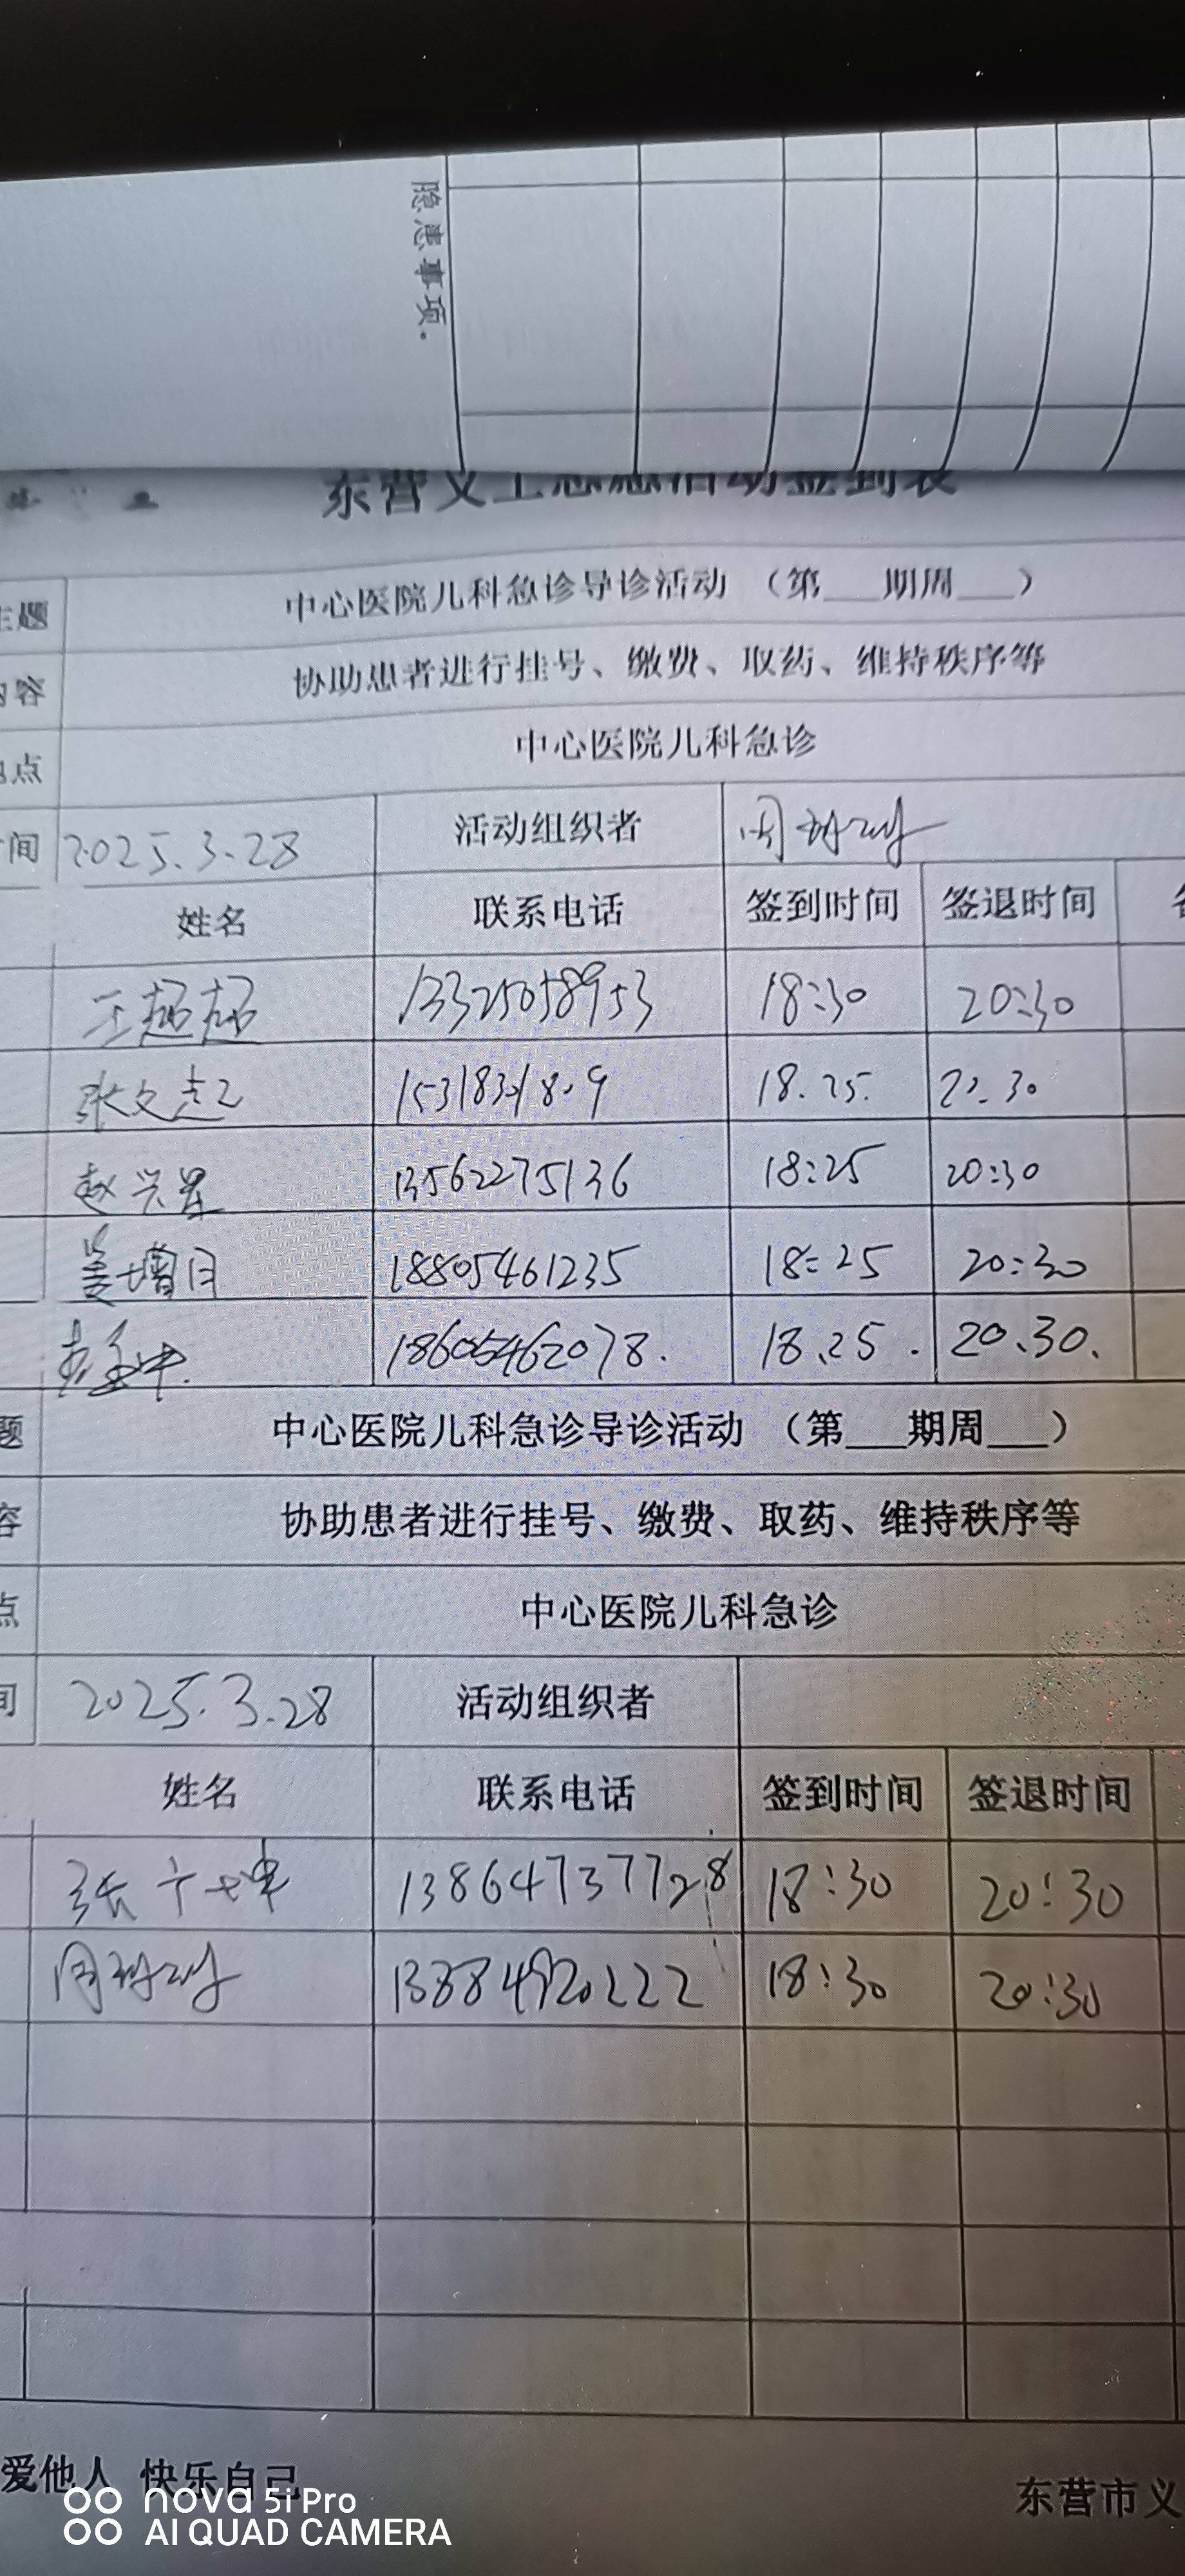 隐患事项.
东营义工志愿活动签到表
主题 中心医院儿科急诊导诊活动 （第___期周___）
内容 协助患者进行挂号、缴费、取药、维持秩序等
地点 中心医院儿科急诊
时间 2025.3.28 活动组织者
姓名 联系电话 签到时间 签退时间
王超超 13325058953 18:30 20:30
张文 18.25. 30
赵兴星 13562275136 18:25 20:30
姜增日 18805461235 18:25 20:30
18605462078. 18.25. 20.30.
题 中心医院儿科急诊导诊活动 （第___期周___）
容 协助患者进行挂号、缴费、取药、维持秩序等
点 中心医院儿科急诊
间 2025.3.28 活动组织者
姓名 联系电话 签到时间 签退时间
张广坤 13864737728 18:30 20:30
周 13884920222 18:30 20:30
爱他人 快乐自己
东营市义
nova 5i Pro
AI QUAD CAMERA